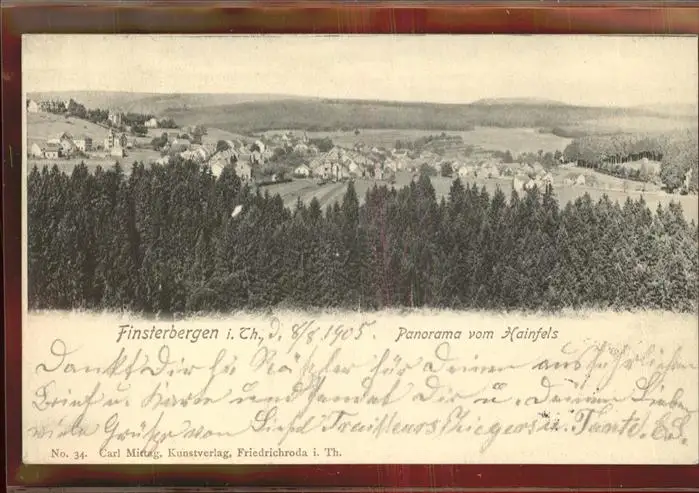 Finsterbergen i. Th., d. 8/8 1905. Panorama vom Hainfels
Dankt Dir für Deinen ausführlichen
Brief u. Karte und sendet Dir u. Deinen Lieben
viele Grüße von Tante
No. 34. Carl Mittag, Kunstverlag, Friedrichroda i. Th.